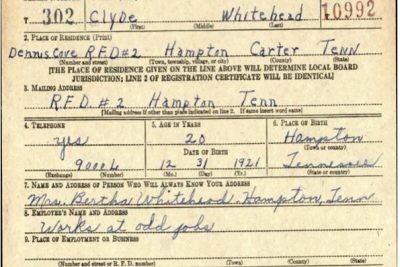 T 302 Clyde Whitehead 10992
(First) (Middle) (Last)
2. PLACE OF RESIDENCE (Print)
Dennis Cove R.F.D #2 Hampton Carter Tenn
(Number and street) (Town, township, village, or city) (County) (State)
[THE PLACE OF RESIDENCE GIVEN ON THE LINE ABOVE WILL DETERMINE LOCAL BOARD
JURISDICTION; LINE 2 OF REGISTRATION CERTIFICATE WILL BE IDENTICAL]
3. MAILING ADDRESS
R.F.D. #2 Hampton Tenn
[Mailing address if other than place indicated on line 2. If same insert word same]
4. TELEPHONE 5. AGE IN YEARS 6. PLACE OF BIRTH
yes 20 Hampton
DATE OF BIRTH (Town or county)
9000L 12 31 1921 Tennessee
(Exchange) (Number) (Mo.) (Day) (Yr.) (State or country)
7. NAME AND ADDRESS OF PERSON WHO WILL ALWAYS KNOW YOUR ADDRESS
Mrs. Bertha Whitehead Hampton, Tenn
8. EMPLOYER'S NAME AND ADDRESS
Works at odd jobs
9. PLACE OF EMPLOYMENT OR BUSINESS
(Number and street or R. F. D. number) (Town) (County) (State)